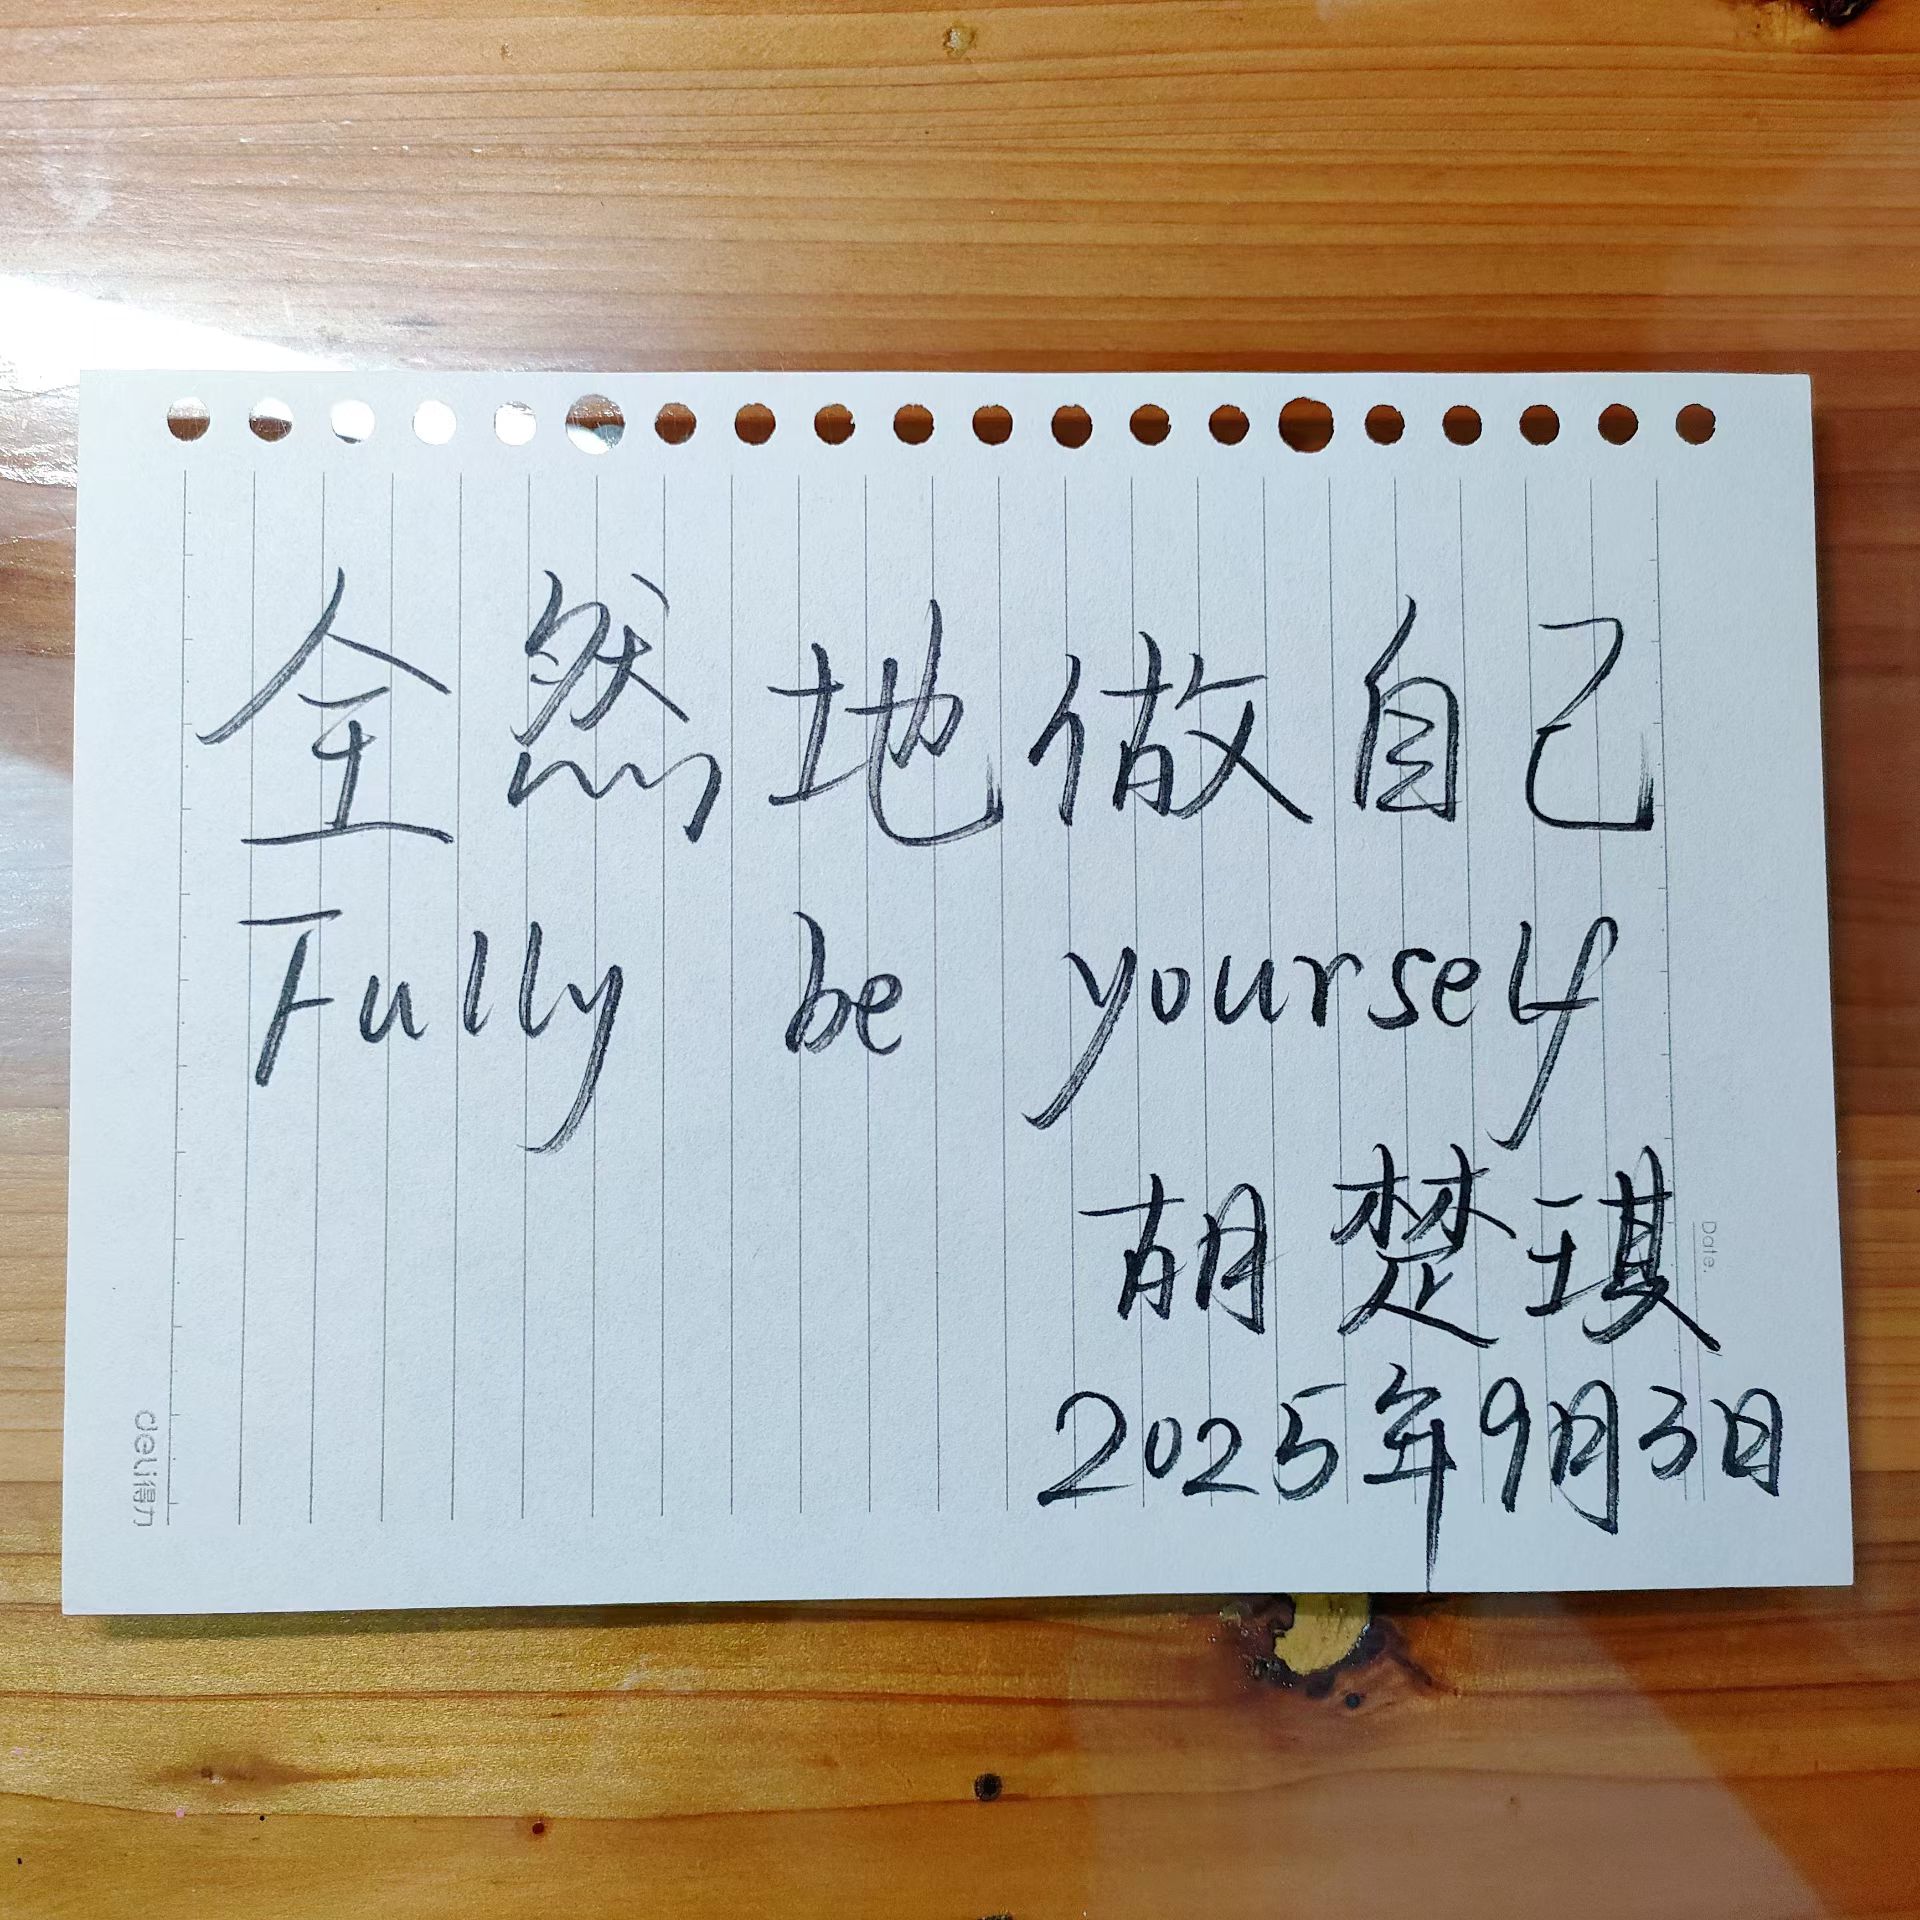 全然地做自己
Fully be yourself
胡楚琪
2025年9月3日
Date.
deli得力